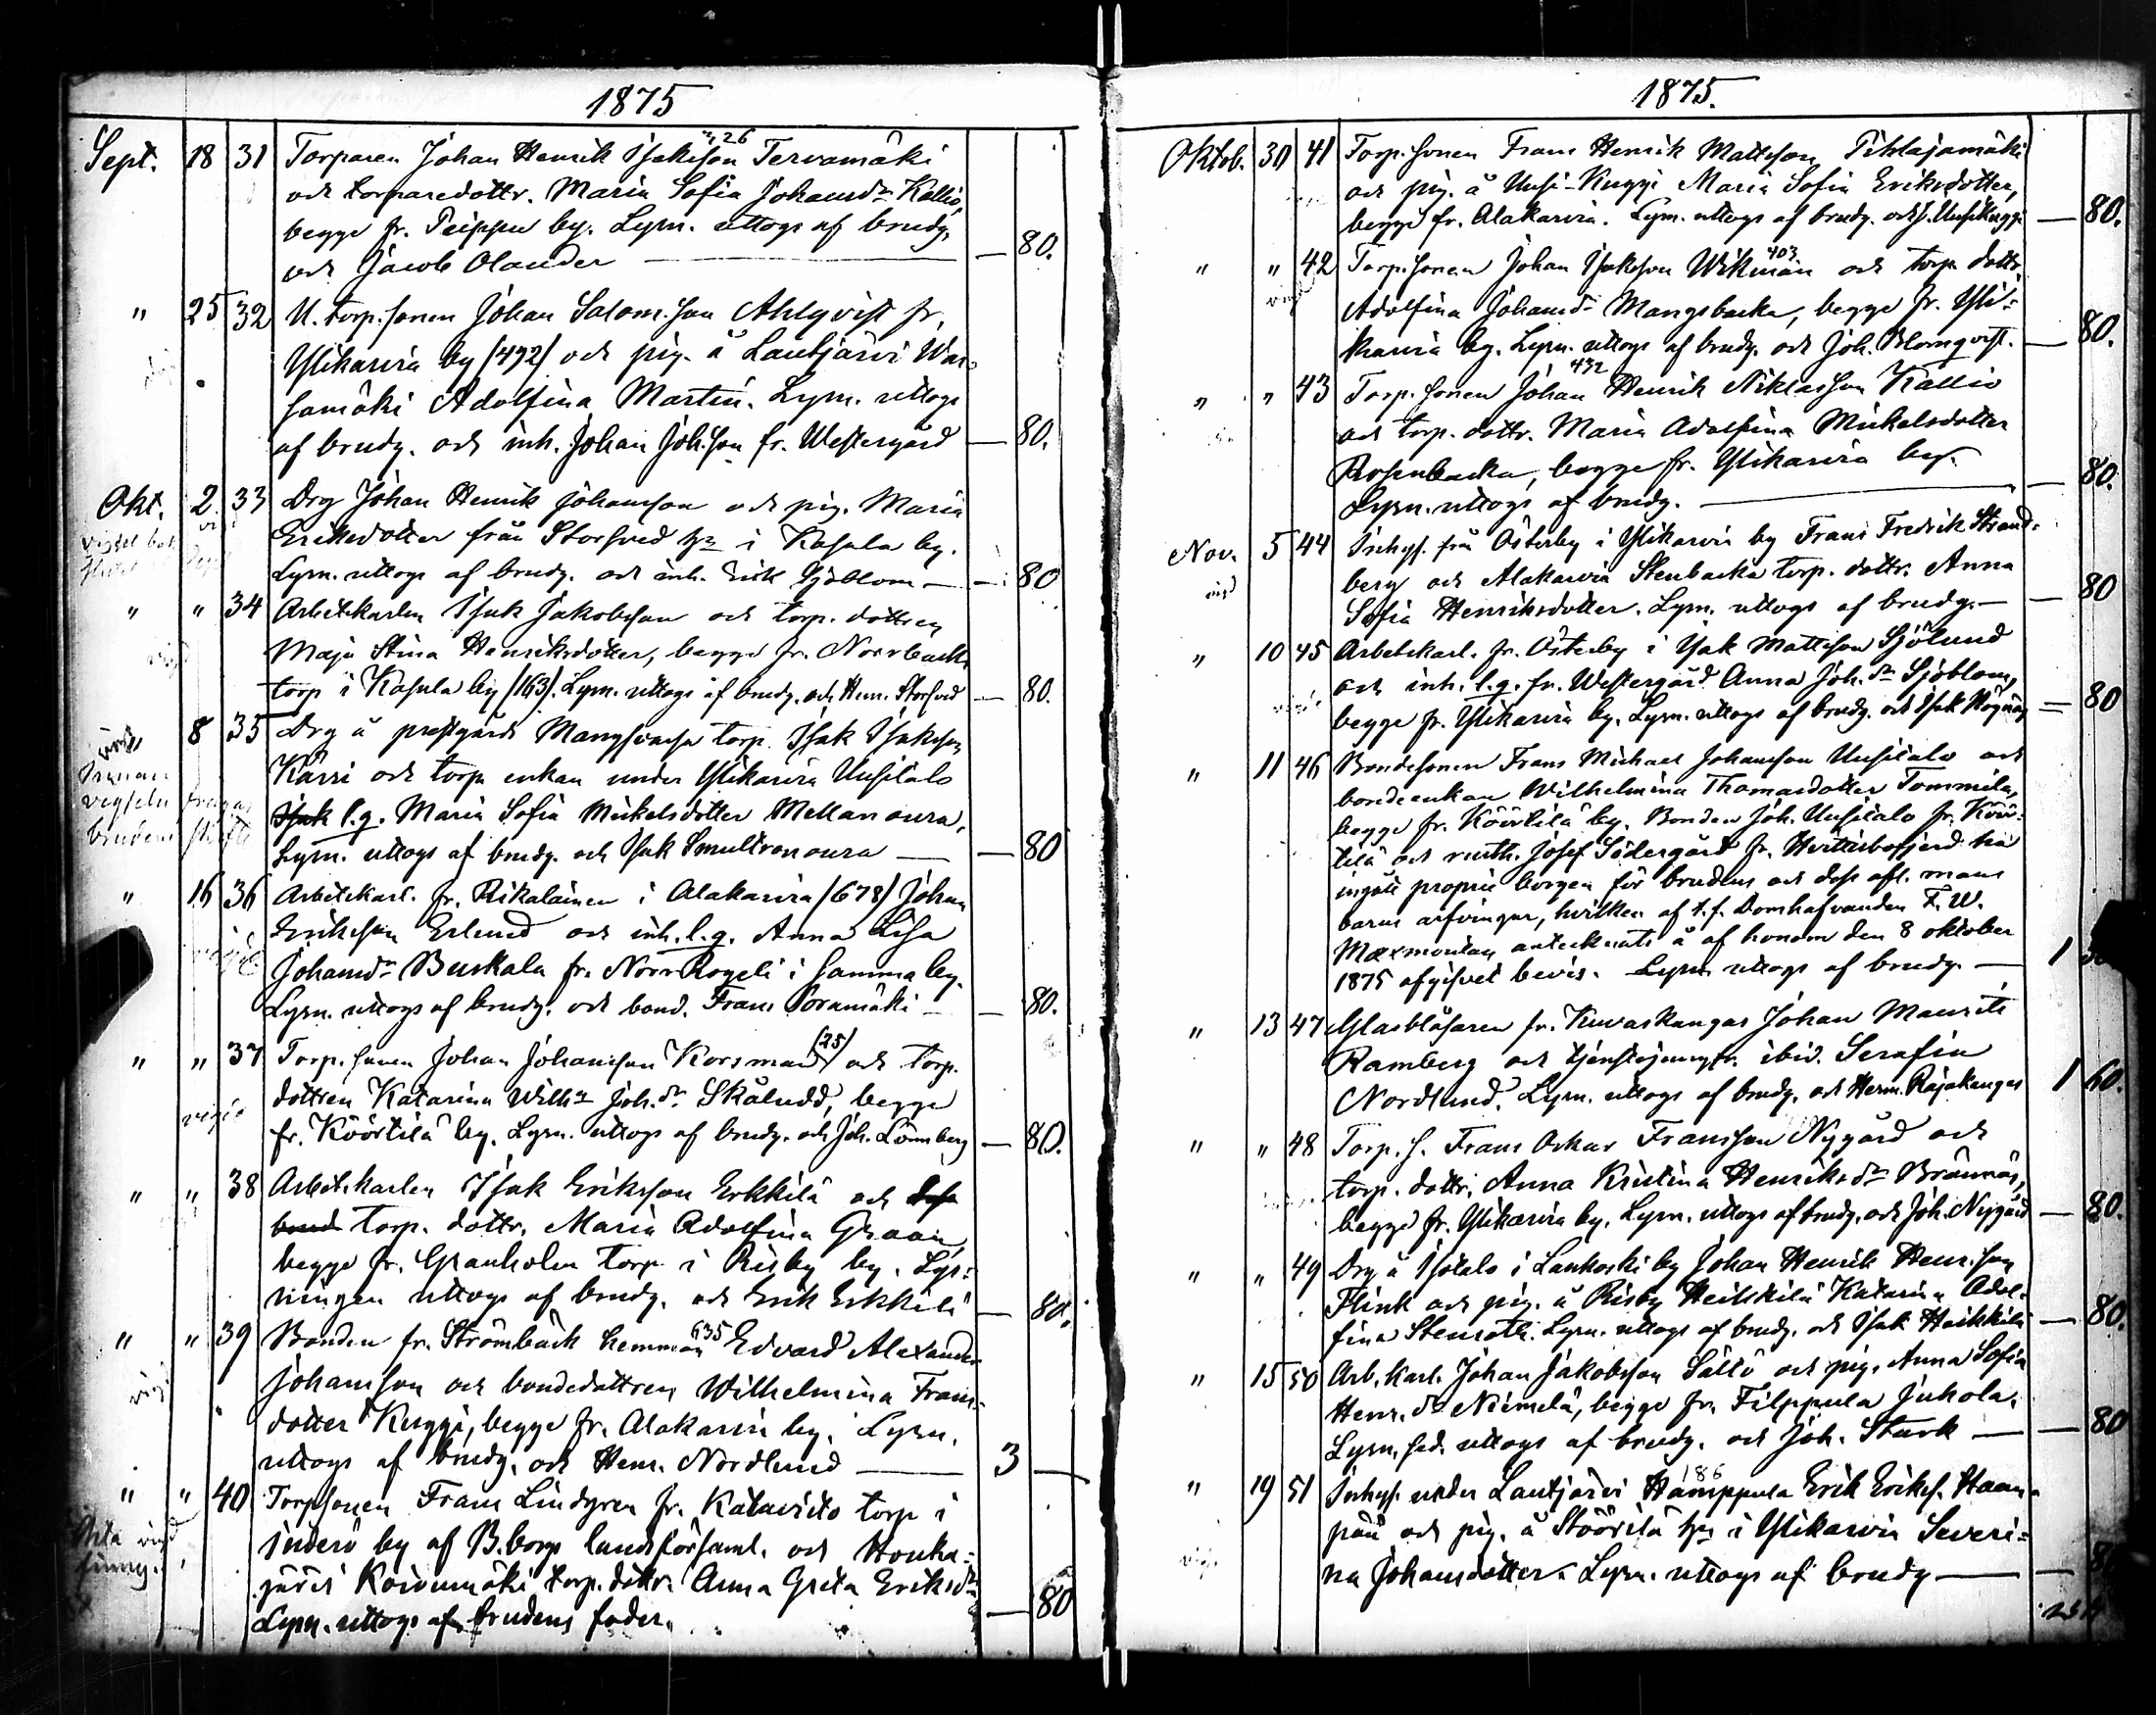 1875
Sept. 18 31 Torparen Johan Henrik Isaksson Tervamäki
och torparedottr. Maria Sofia Johansdr Kallio,
begge fr. Peippu by. Lysn. uttogs af brudg.
och Jacob Olander — — 80.
" 25 32 U. torp.sonen Johan Salom.son Ahlqvist fr.
Ylikarvia by (492) och pig. å Lautjärvi War-
samäki Adolfina Martin. Lysn. uttogs
af brudg. och inh. Johan Joh.son fr. Westergård — 80.
Okt. 2 33 Drg Johan Henrik Johansson och pig. Maria
Eriksdotter från Storsved hn i Kasala by.
Lysn. uttogs af brudg. och inh. Erik Sjöblom — — 80
" " 34 Arbetskarlen Isak Jakobsson och torp. dottren
Maja Stina Henriksdotter, begge fr. Norrback
torp i Kasala by (163). Lysn. uttogs af brudg. och Henr. Storsved — 80.
8 35 Drg å prestgårds torp. Isak Isaksson
Kärri och torp enkan under Ylikarvia Uusitalo
Isak l.g. Maria Sofia Mickelsdotter Mellanoura.
Lysn. uttogs af brudg. och Isak Smultronoura — — 80
" 16 36 Arbetskarl. fr. Rikalainen i Alakarvia (678) Johan
Eriksson Erlund och inh. l.g. Anna Lisa
Johansdr Buskala fr. Norr Rogeli i samma by.
Lysn. uttogs af brudg. och bond. Frans Soramäki — — 80.
" " 37 Torp.sonen Johan Johansson Korsman (25) och torp.
dottren Katarina Wilhna Joh.dr Skäludd, begge
fr. Köörtilä by. Lysn. uttogs af brudg. och Joh. Lönnberg — 80.
" " 38 Arbetskarlen Isak Eriksson Erkkilä och
bond torp. dottr. Maria Adolfina Graan
begge fr. Granholm torp i Risby by. Lys-
ningen uttogs af brudg. och Erik Erkkilä — 80.
" " 39 Bonden fr. Strömbäck hemman 635 Edvard Alexander
Johansson och bondedottren Wilhelmina Frans-
dotter Kuggi, begge fr. Alakarvia by. Lysn.
uttogs af brudg. och Henr. Nordlund — 3 —
" " 40 Torpsonen Frans Lindgren fr. Katavisto torp i
Inderö by af B.borgs landsförsaml. och Honka-
järvi Koivumäki torp. dottr. Anna Greta Eriksdr
Lysn. uttogs af brudens fader. — 80
1875.
Oktob. 30 41 Torp.sonen Frans Henrik Mattsson Pihlajamäki
och pig. å Uusi-Kuggi Maria Sofia Eriksdotter,
begge fr. Alakarvia. Lysn. uttogs af brudg. och J. Uusikuggi — 80.
" " 42 Torp.sonen Johan Isaksson Wikman 403 och torp dottr.
Adolfina Johansdr Mangsbacka, begge fr. Yli-
karvia by. Lysn. uttogs af brudg. och Joh. Blomqvist. — 80.
432
" " 43 Torp.sonen Johan Henrik Niklasson Kallio
och torp. dottr. Maria Adolfina Mickelsdotter
Rosenbacka, begge fr. Ylikarvia by.
Lysn. uttogs af brudg. — — 80.
Nov. 5 44 Inhys. från Österby i Ylikarvia by Frans Fredrik Strand-
berg och Alakarvia Stenbacka torp. dottr. Anna
Sofia Henriksdotter. Lysn. uttogs af brudg. — — 80
" 10 45 Arbetskarl. fr. Österby i Isak Mattsson Sjölund
och inh. l.g. fr. Westergård Anna Joh.dr Sjöblom,
begge fr. Ylikarvia by. Lysn. uttogs af brudg. och Isak — 80
" 11 46 Bondesonen Frans Michael Johansson Uusitalo och
bondeenkan Wilhelmina Thomasdotter Tommila,
begge fr. Köörtilä by. Bonden Joh. Uusitalo fr. Köör-
tilä och Josef Södergård fr. Hvittisbofjerd ha
ingått proprie borgen för brudens och dess afl. mans
barns arfvingar, hvilken af t.f. Domhafvanden F. W.
antecknats å af honom den 8 oktober
1875 afgifvet bevis. Lysn uttogs af brudg. — 1
" 13 47 Glasblåsaren fr. Kuvaskangas Johan Maurits
Ramberg och tjenstejungfr. ibid. Serafin
Nordlund. Lysn. uttogs af brudg. och Herm. Rajakangas 1 60.
" " 48 Torp. s. Frans Oskar Fransson Nygård och
torp. dottr. Anna Kristina Henriksdr Brännäs,
begge fr. Ylikarvia by. Lysn. uttogs af brudg. och Joh. Nygård — 80.
" " 49 Drg å Isotalo i Lankoski by Johan Henrik Henr.son
Flink och pig. å Risby Heikkilä Katarina Adol-
fina Stenroth. Lysn. uttogs af brudg. och Isak Heikkilä — 80.
" 15 50 Arb.karl. Johan Jakobsson Sältö och pig. Anna Sofia
Henr.dr Niemelä, begge fr. Filppula Jukola.
Lysn.sed. uttogs af brudg. och Joh. Stark — — 80
186
" 19 51 Inhys. under Lautjärvi Hamppula Erik Eriks. Haan-
pää och pig. å Stöörilä hn i Ylikarvia Severi-
na Johansdotter. Lysn. uttogs af brudg — —